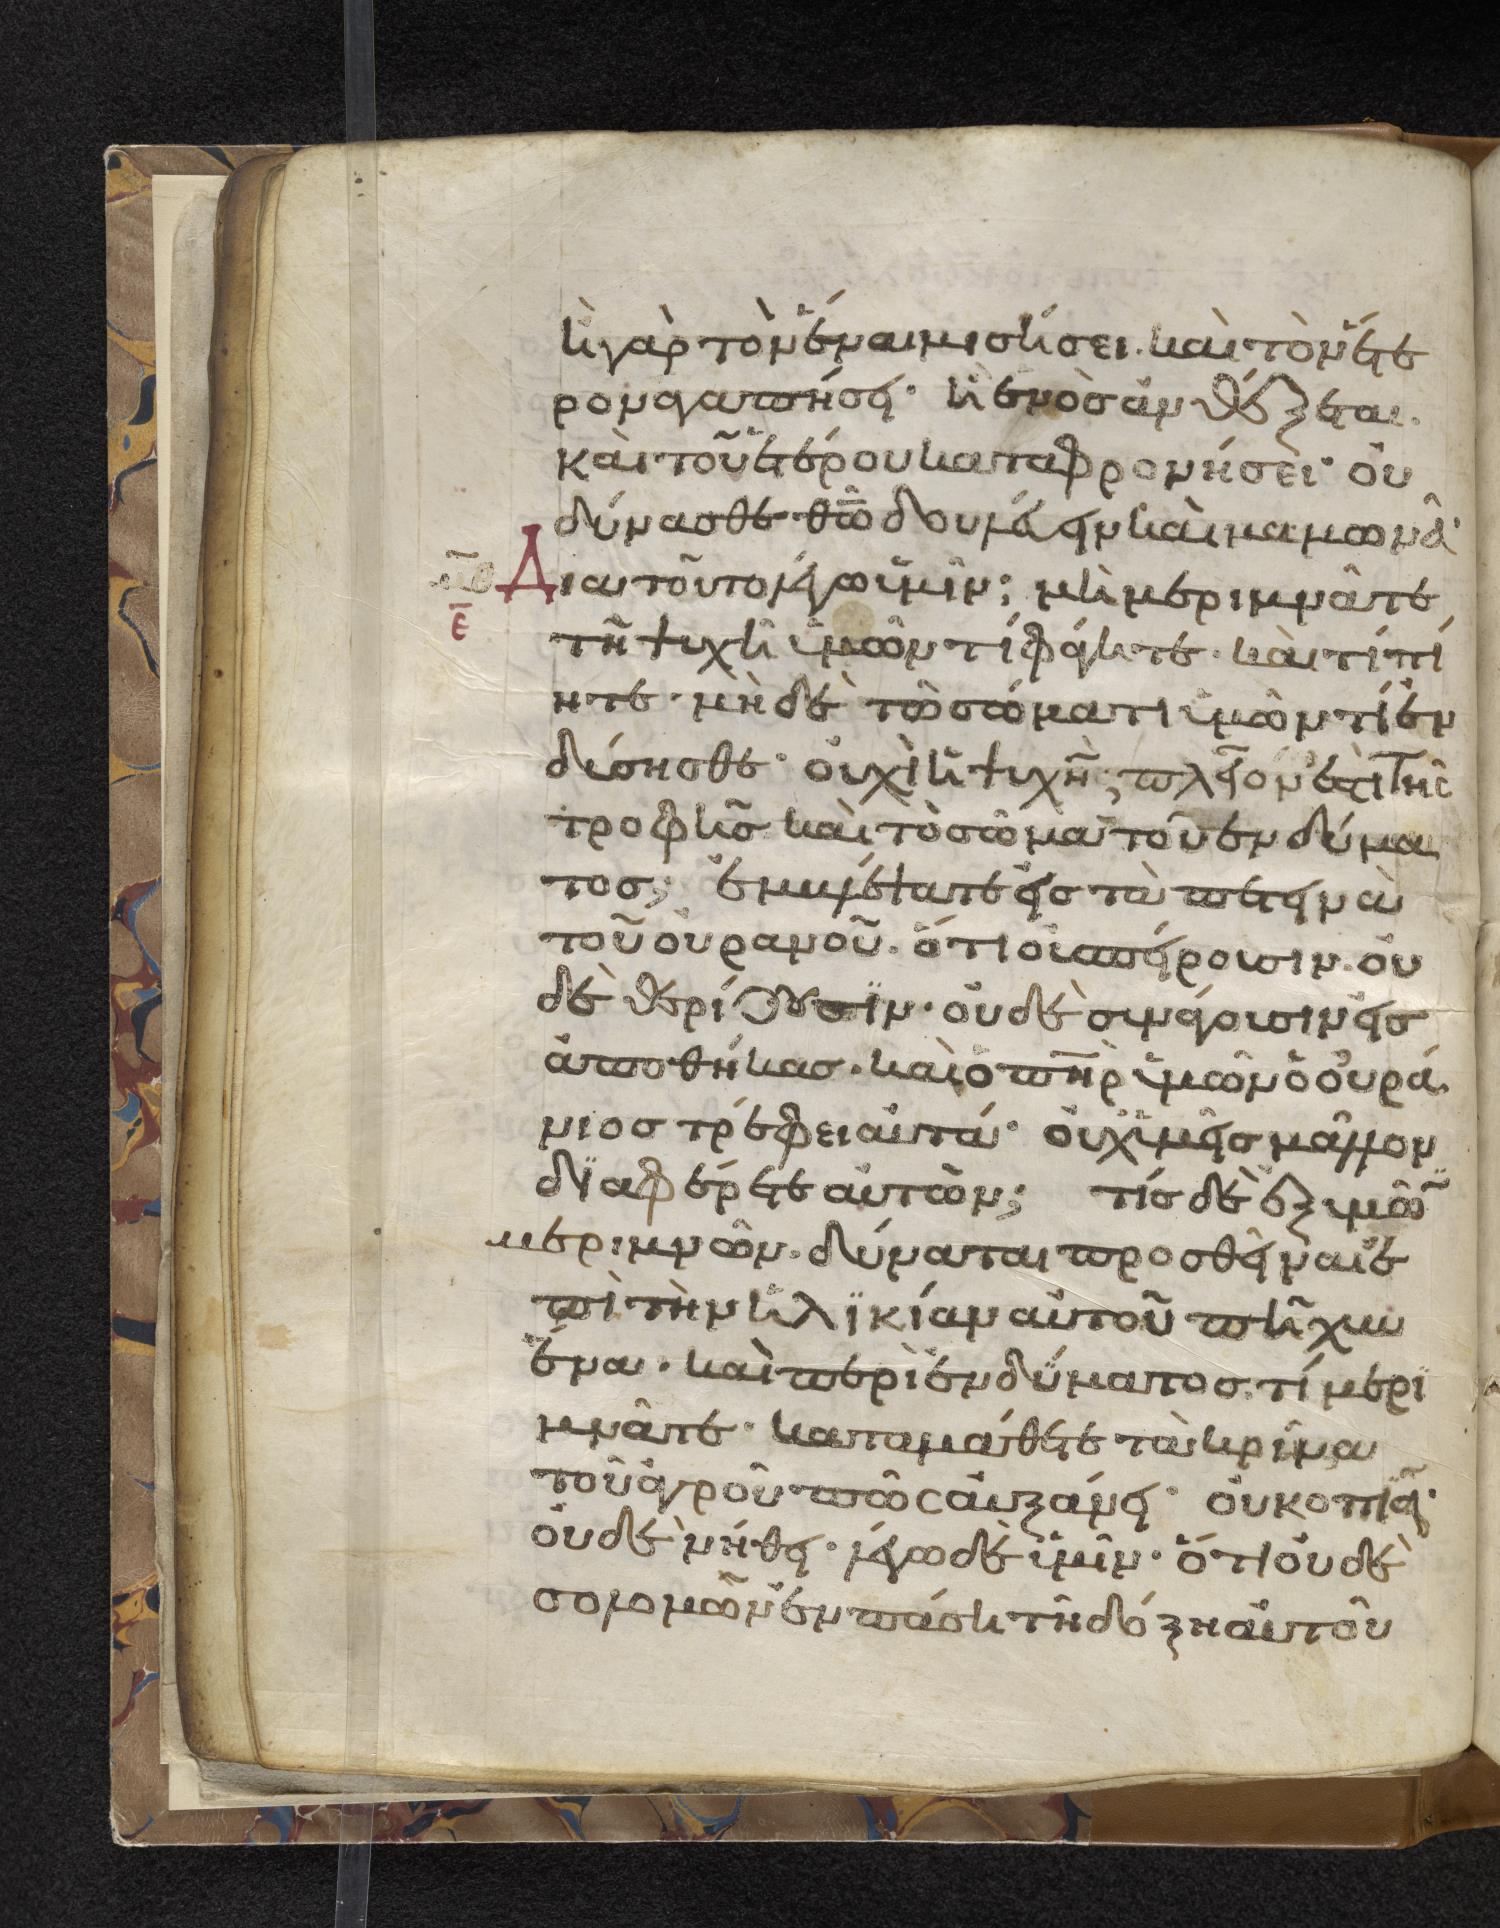 ἢ γὰρ τὸν ἕνα μισήσει. καὶ τὸν ἕτε
ρον ἀγαπήσει· ἢ ἑνὸσ ἀνθέξεται.
καὶ τοῦ ἑτέρου καταφρονήσει· οὐ
δύνασθε θῶ δουλεύειν καὶ μαμωνᾶ·
μθ Διατοῦτο λέγω ὑμῖν; μὴ μεριμνᾶτε
ε τῆ ψυχῆ ὑμῶν τί φάγητε· καὶ τί πί
ητε· μὴ δὲ τῶ σώματι ὑμῶν τί ἐν
δύσησθε· οὐχὶ ἡ ψυχὴ; πλεῖόν ἐστι τῆς
τροφῆσ καὶ τὸ σῶμα τοῦ ἐνδύμα
τοσ; ἐμβλέψατε εἰσ τὰ πετεινὰ
τοῦ οὐρανοῦ. ὅτι οὐ σπείρουσιν. οὐ
δὲ θερίζουσϊν· οὐδὲ συνάγουσιν εἰσ
ἀποθήκασ. καὶ ὁ πηρ ὑμῶν ὁ οὐρά
νιοσ τρέφει αὐτά· οὐχ ὑμεῖσ μᾶλλον
δϊαφέρετε αὐτῶν; τίσ δὲ ἐξ ὑμῶ
μεριμνῶν. δύναται προσθεῖναι ἐ
πὶ τὴν ἡλϊκίαν αὐτοῦ πῆχυν
ἕνα. καὶ περὶ ἐνδύματοσ. τί μερϊ
μνᾶτε· καταμάθετε τὰ κρίνα
τοῦ ἀγροῦ πῶς αὐξάνει· οὐ κοπϊᾶ·
οὐδὲ νήθει· λέγω δὲ ὑμῖν· ὅτι οὐδὲ
σολομῶν ἐν πάση τῆ δόξη αὐτοῦ